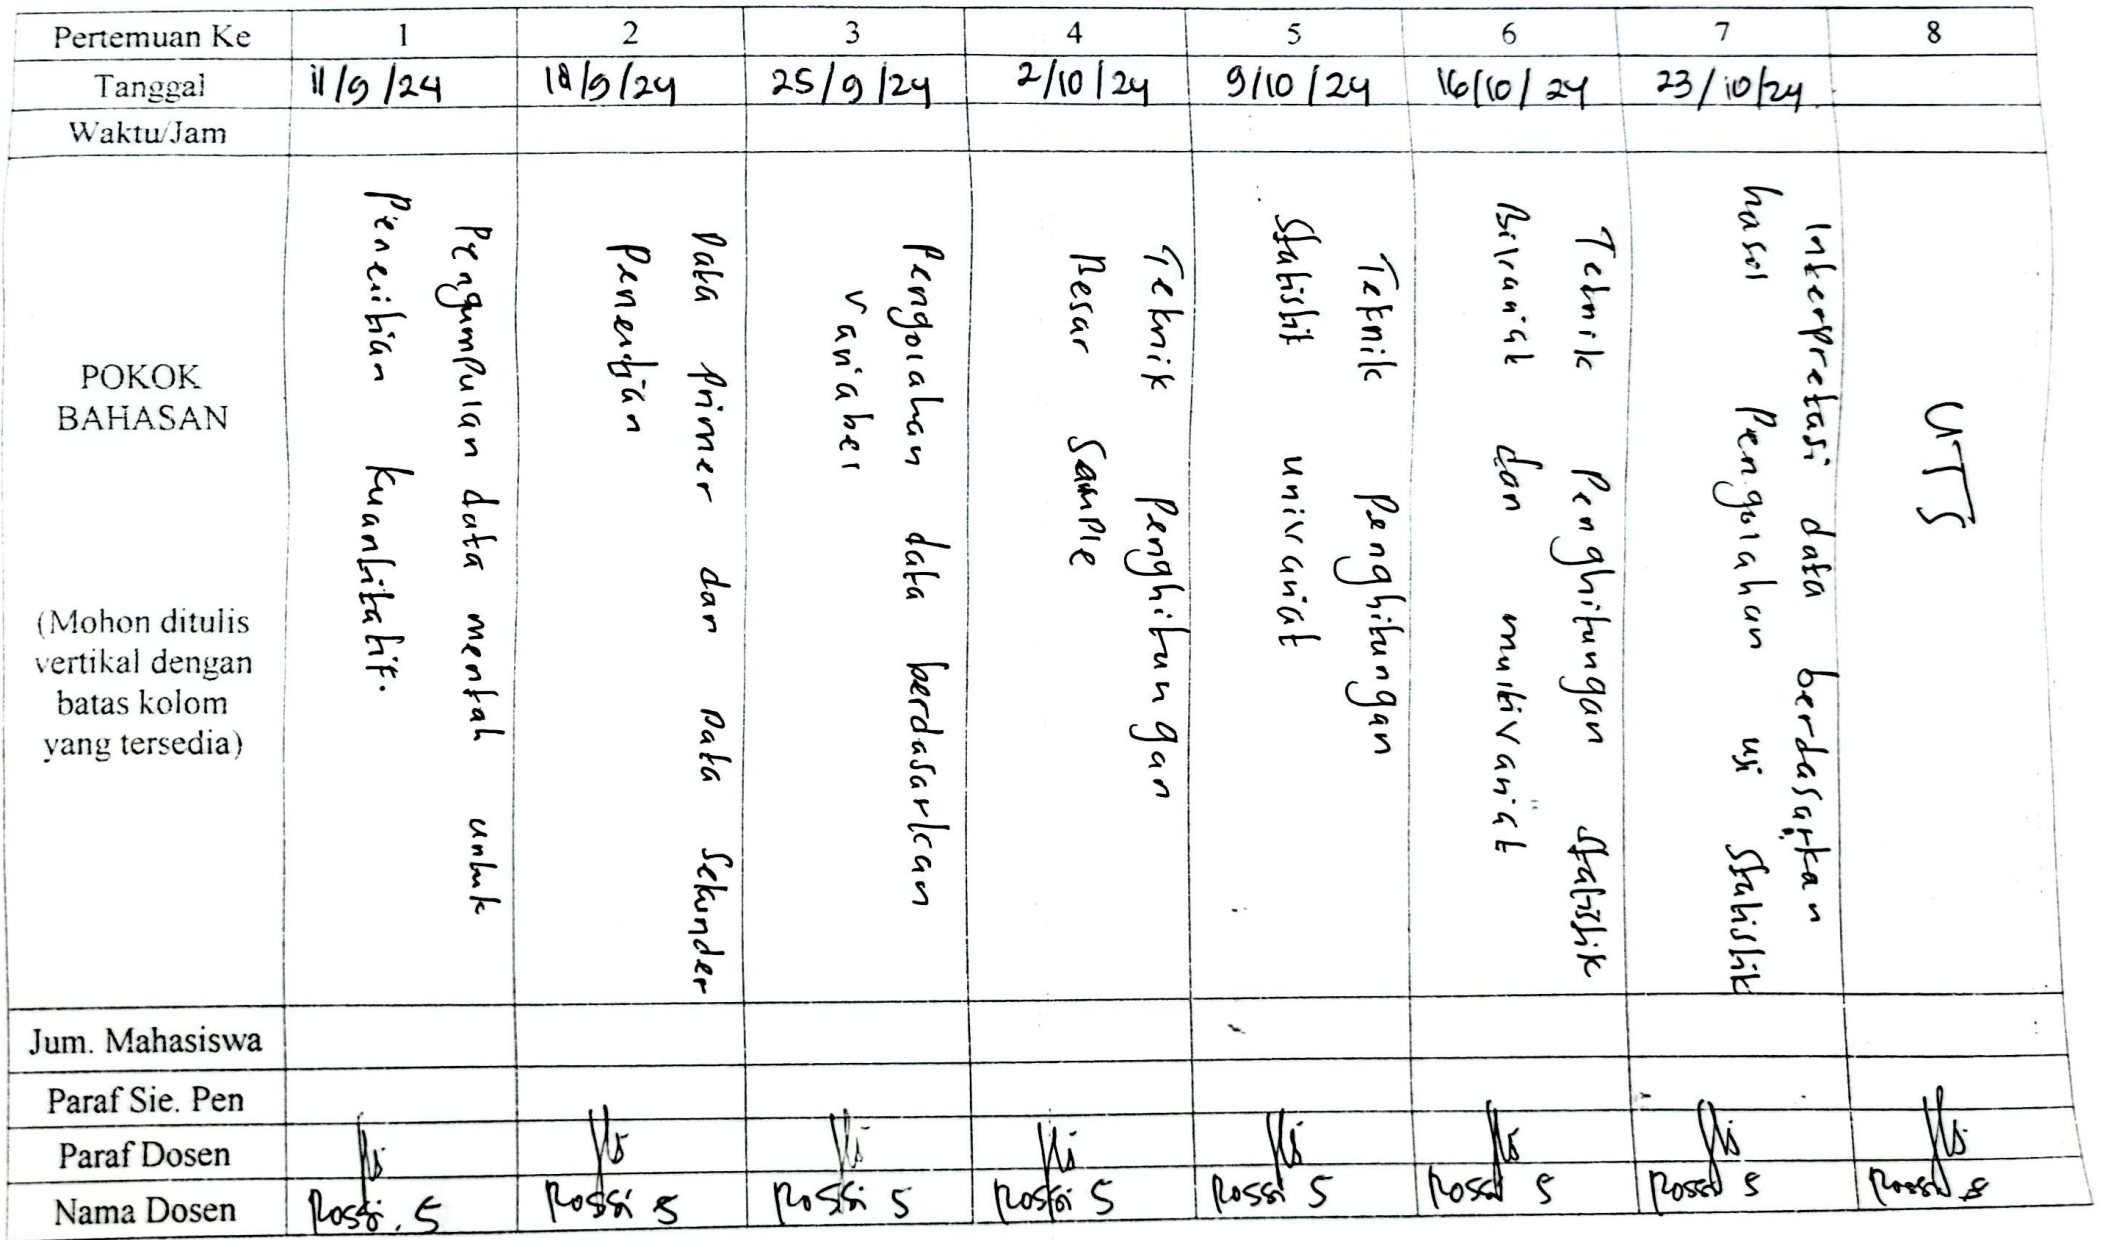 Pertemuan Ke 1 2 3 4 5 6 7 8
Tanggal 11/9/24 18/9/24 25/9/24 2/10/24 9/10/24 16/10/24 23/10/24
Waktu/Jam
POKOK
BAHASAN
(Mohon ditulis
vertikal dengan
batas kolom
yang tersedia)
Pengumpulan data mentah untuk
Penelitian Kuantitatif.
Data Primer dan Data Sekunder
Penelitian
Pengolahan data berdasarkan
Variabel
Teknik Penghitungan
Besar Sample
Teknik Penghitungan
Statistik univariat
Teknik Penghitungan Statistik
Bivariat dan multivariat
Interpretasi data berdasarkan
hasil Pengolahan uji Statistik
UTS
Jum. Mahasiswa
Paraf Sie. Pen
Paraf Dosen
Nama Dosen Rossi. S Rossi S Rossi S Rossi S Rossi S Rossi S Rossi S Rossi S